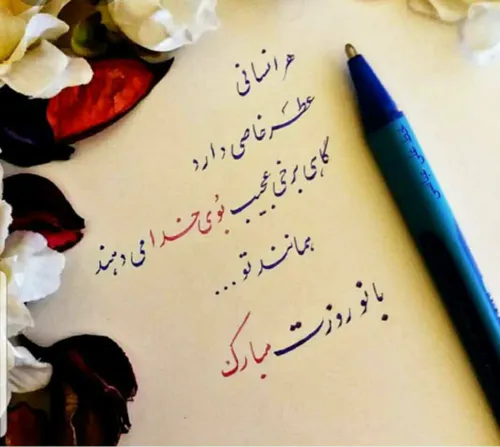 هر انسانی
عطر خاصی دارد
گاهی برخی عجیب بوی خدا می دهند
همانند تو ...
بانو روزت مبارک